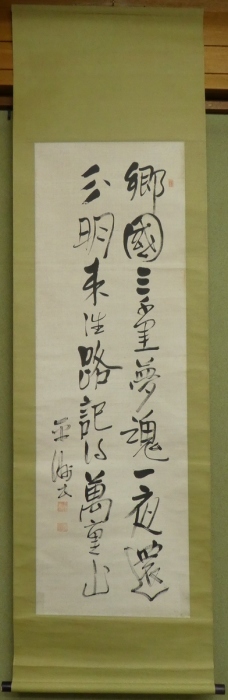 鄉國三千里夢魂一夜還
分明来往路記得萬重山